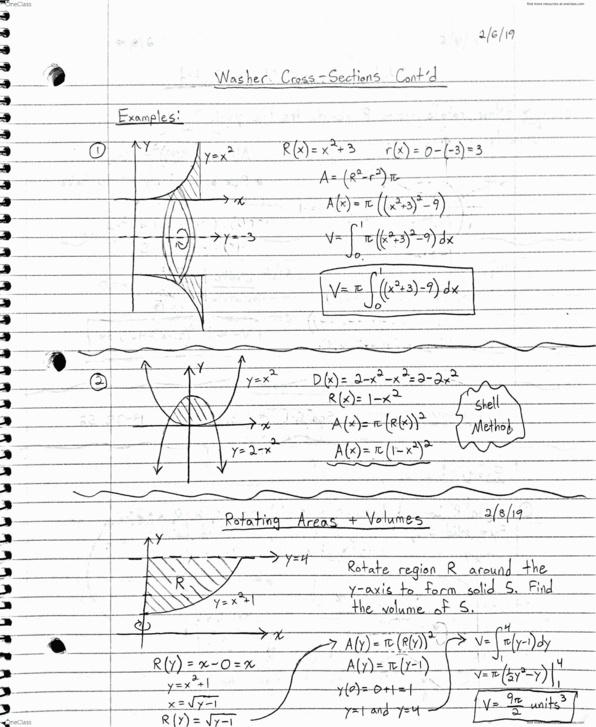 OneClass
find more resources at oneclass.com
2/6/19
Washer Cross-Sections Cont'd
Examples:
① y
y=x²
x
y=-3
R(x)=x²+3 r(x)=0-(-3)=3
A=(R²-r²)π
A(x)=π((x²+3)²-9)
V=∫₀¹π((x²+3)²-9)dx
V=π∫₀¹((x²+3)-9)dx
② y
y=x²
x
y=2-x²
D(x)=2-x²-x²=2-2x²
R(x)=1-x²
A(x)=π(R(x))²
A(x)=π(1-x²)²
Shell
Method
Rotating Areas + Volumes 2/8/19
y
y=4
R
y=x²+1
x
Rotate region R around the
y-axis to form solid S. Find
the volume of S.
R(y)=x-0=x
y=x²+1
x=√y-1
R(y)=√y-1
A(y)=π(R(y))²
A(y)=π(y-1)
y(0)=0+1=1
y=1 and y=4
V=∫₁⁴π(y-1)dy
V=π(½y²-y)|₁⁴
V=9π/2 units³
OneClass
find more resources at oneclass.com